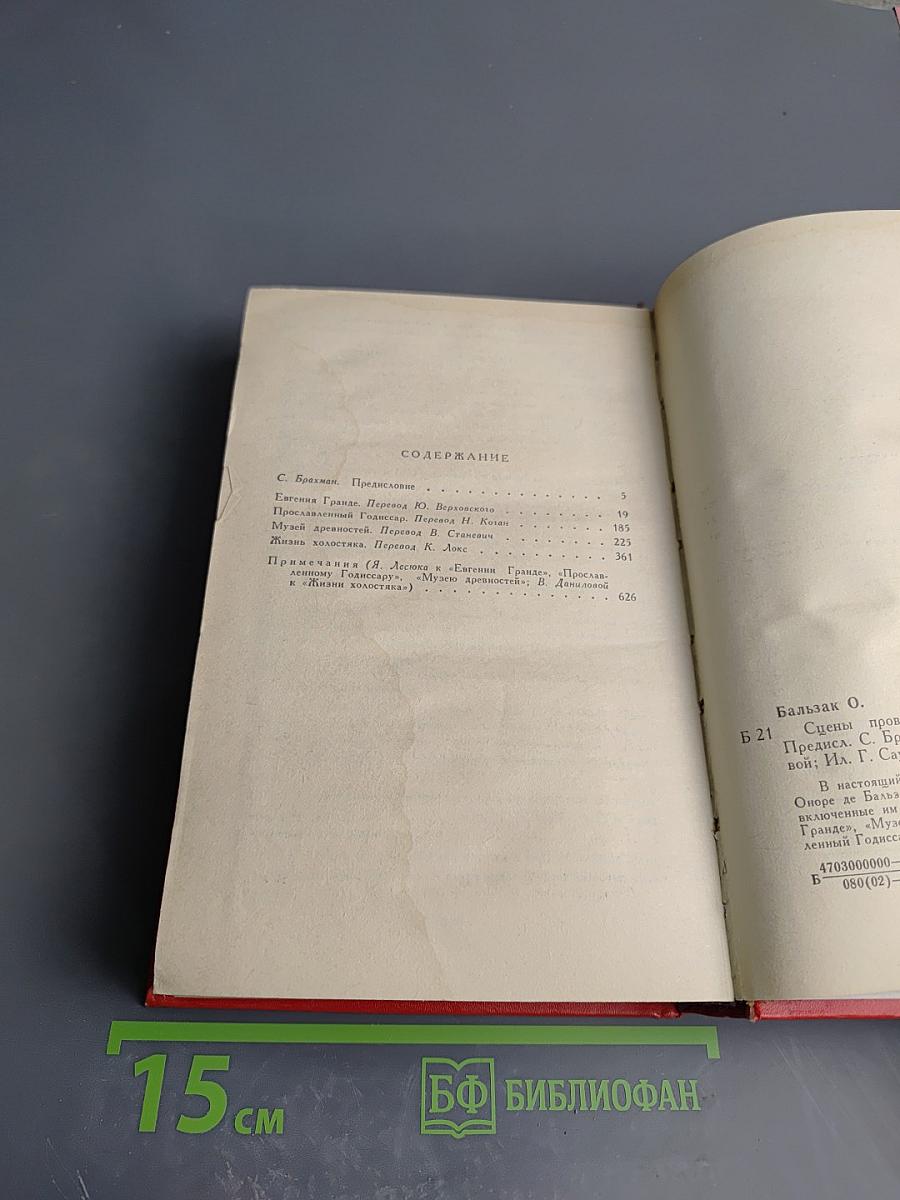 СОДЕРЖАНИЕ
С. Брахман. Предисловие . . . . . . . . . . . . . . 5
Евгения Гранде. Перевод Ю. Верховского . . . . . . . . 19
Прославленный Годиссар. Перевод Н. Коган . . . . . . . 185
Музей древностей. Перевод В. Станевич . . . . . . . . 225
Жизнь холостяка. Перевод К. Локс . . . . . . . . . . 361
Примечания (Я. Лесюка к «Евгении Гранде», «Прослав-
ленному Годиссару», «Музею древностей»; В. Даниловой
к «Жизни холостяка») . . . . . . . . . . . . . . 626
Бальзак О.
Б 21 Сцены пров
Предисл. С. Бр
вой; Ил. Г. Сау
В настоящий
Оноре де Бальз
включенные им
Гранде», «Музе
ленный Годисса
Б 4703000000—
080(02)—
15 см
БФ БИБЛИОФАН